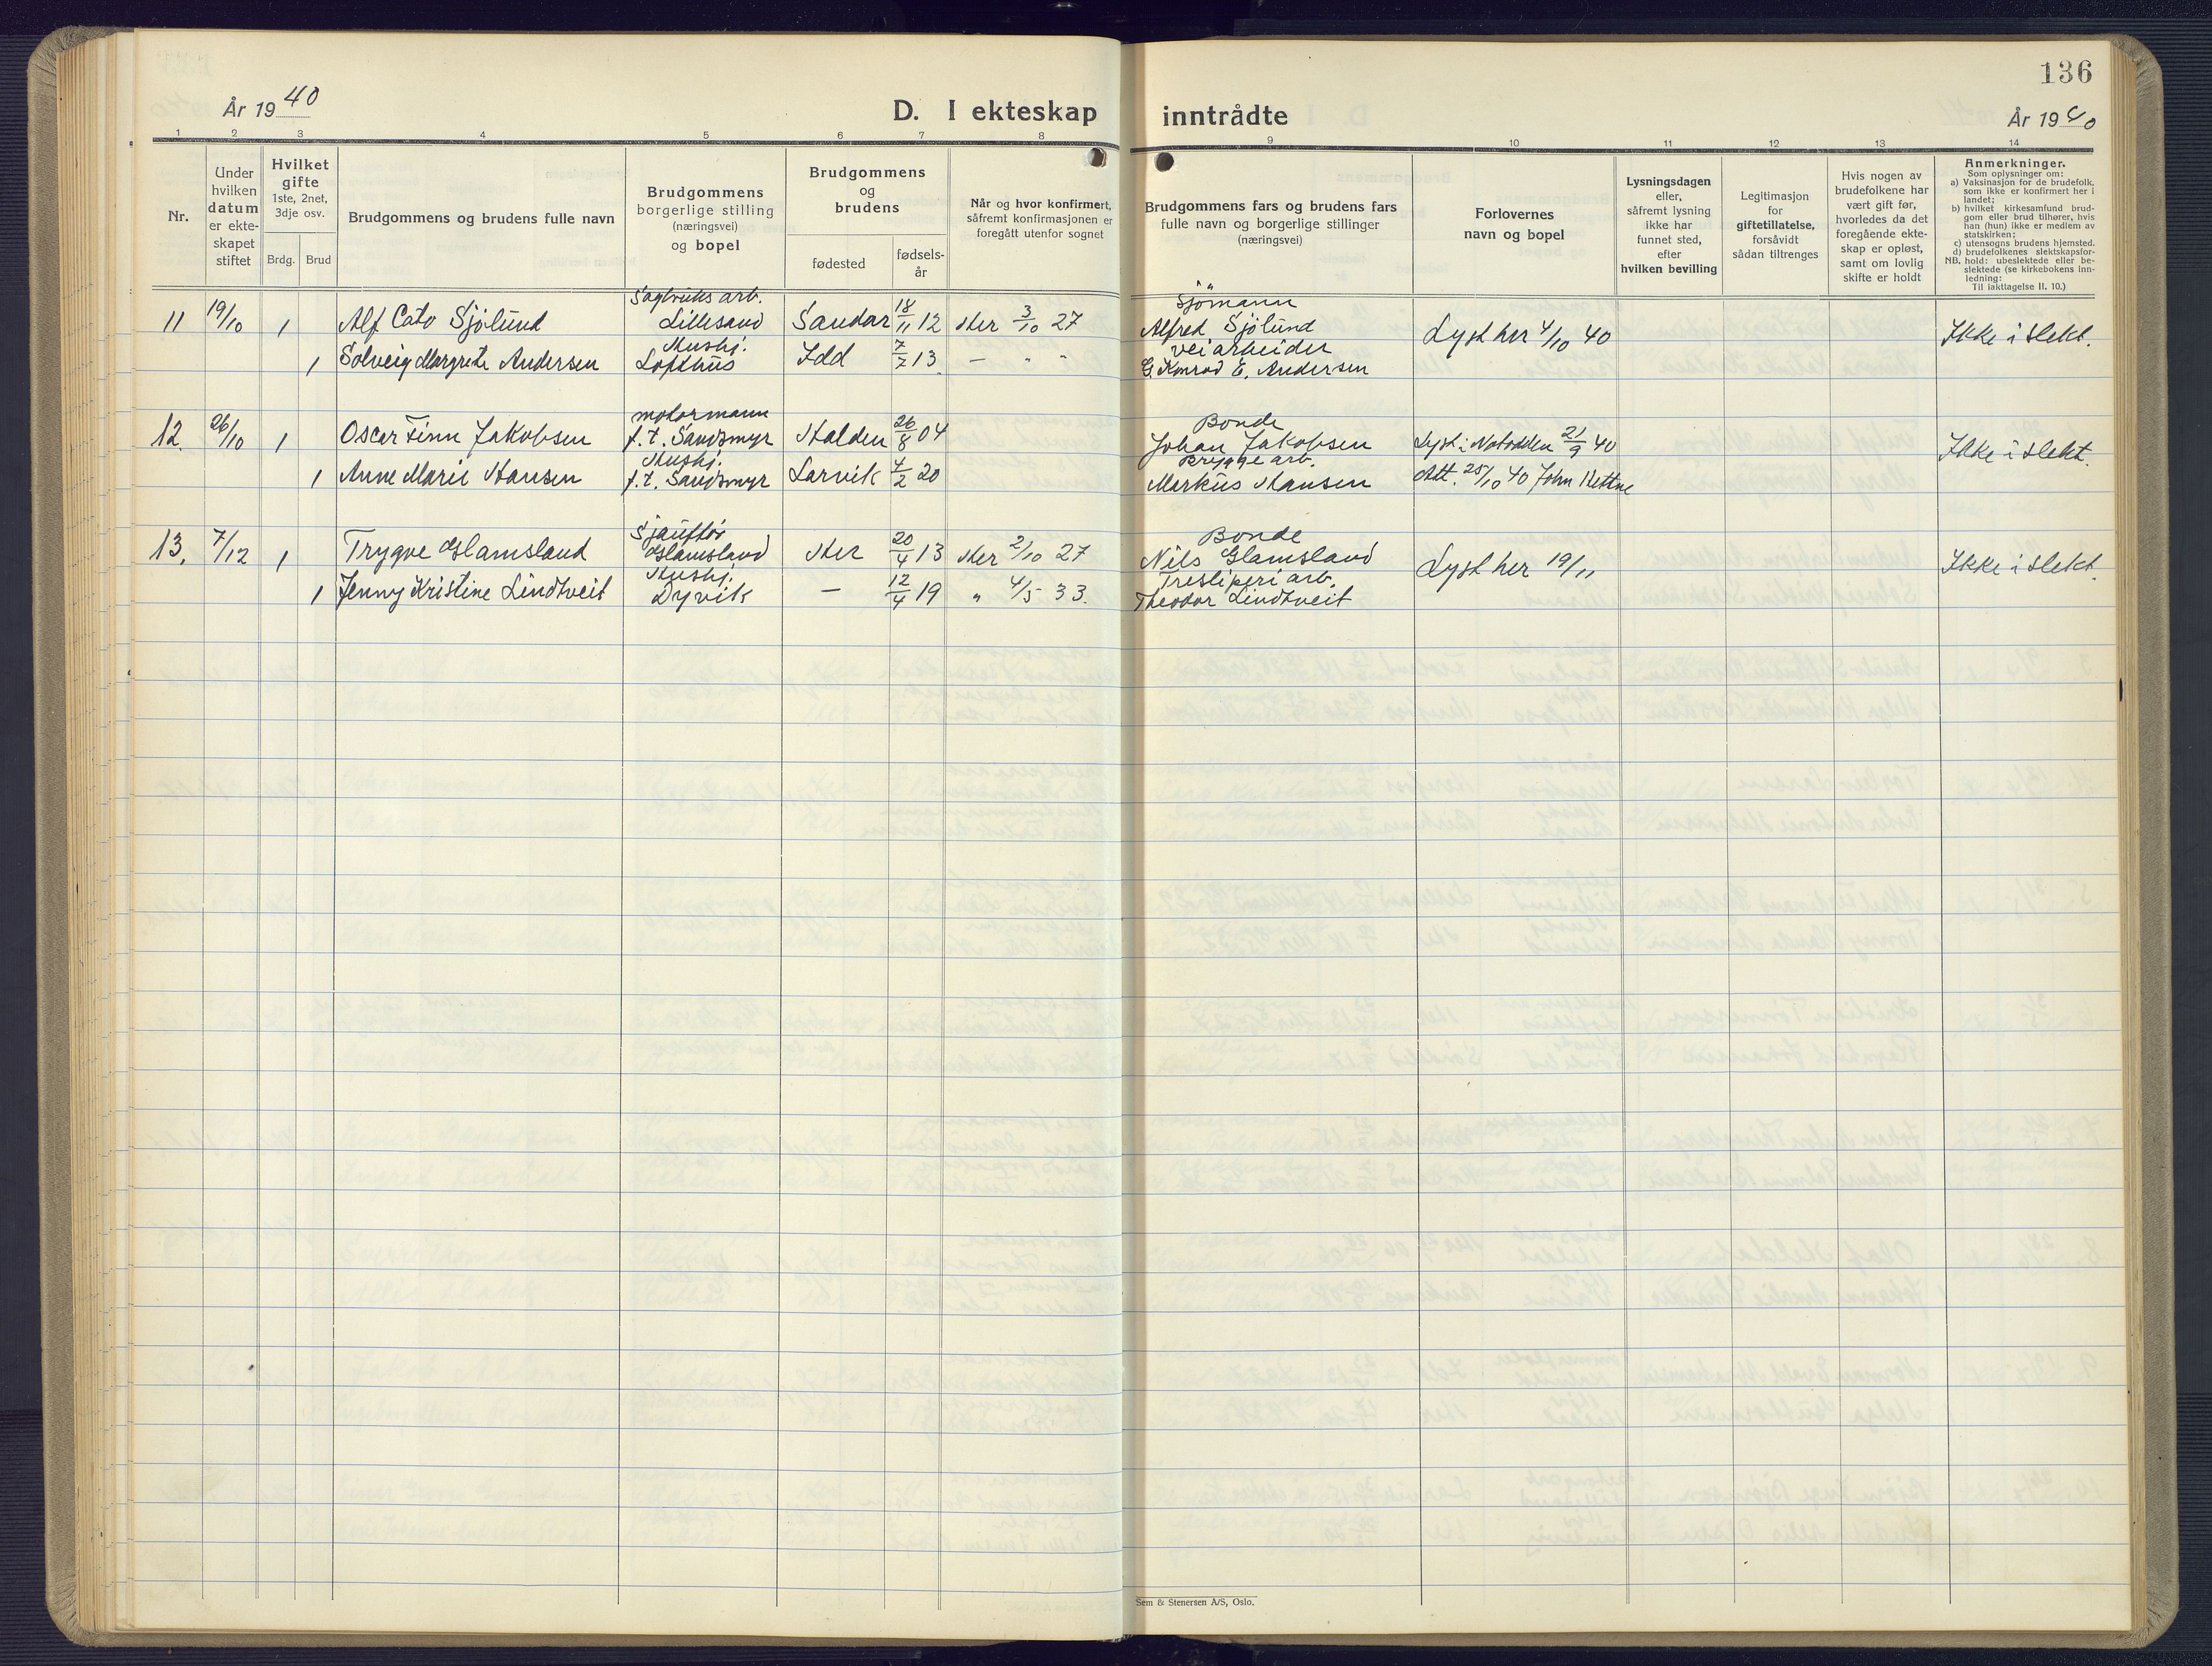 136
År 1940
D. I ekteskap inntrådte
År 1940
1 2 3 4 5 6 7 8 9 10 11 12 13 14
Nr.
Under hvilken datum er ekte-skapet stiftet
Hvilket gifte
1ste, 2net, 3dje osv.
Brdg. Brud
Brudgommens og brudens fulle navn
Brudgommens borgerlige stilling (næringsvei) og bopel
Brudgommens og brudens
fødested
fødsels-år
Når og hvor konfirmert, såfremt konfirmasjonen er foregått utenfor sognet
Brudgommens fars og brudens fars fulle navn og borgerlige stillinger (næringsvei)
Forlovernes navn og bopel
Lysningsdagen eller, såfremt lysning ikke har funnet sted, efter hvilken bevilling
Legitimasjon for giftetillatelse, forsåvidt sådan tiltrenges
Hvis nogen av brudefolkene har vært gift før, hvorledes da det foregående ekte-skap er opløst, samt om lovlig skifte er holdt
Anmerkninger.
Som oplysninger om:
a) Vaksinasjon for de brudefolk, som ikke er konfirmert her i landet;
b) hvilket kirkesamfund brud-gom eller brud tilhører, hvis han (hun) ikke er medlem av statskirken;
c) utensogns brudens hjemsted.
d) brudefolkenes slektskapsfor-hold: ubeslektede eller be-slektede (se kirkebokens inn-ledning:
NB.
Til iakttagelse II. 10.)
Sagbruks arb. Sjömann
11 19/10 1 Alf Cato Sjölund Lillesand Sandar 18/11 12 Her 3/10 27 Alfred Sjölund Lyst her 4/10 40 Ikke i slekt.
Hushj. veiarbeider
1 Solveig Margrete Andersen Lofthus Idd 7/7 13 — " " Konrad E. Andersen
motormann Bonde
12. 26/10 1 Oscar Finn Jakobsen f.t. Sandsmyr Halden 26/8 04 Johan Jakobsen Lyst i Notodden 21/9 40 Ikke i slekt.
Hushj. Bryggearb.
1 Anne Marie Hansen f.t. Sandsmyr Larvik 4/2 20 Markus Hansen Att. 25/10 40 John Kettne
Sjauffør Bonde
13. 7/12 1 Trygve Glamsland Glamsland Her 20/4 13 Her 2/10 27 Nils Glamsland Lyst her 19/11 Ikke i slekt.
Hushj. Tresliperi arb.
1 Jenny Kristine Lindtveit Dyvik — 12/4 19 " 4/5 33. Theodor Lindtveit
Sem & Stenersen A/S, Oslo.